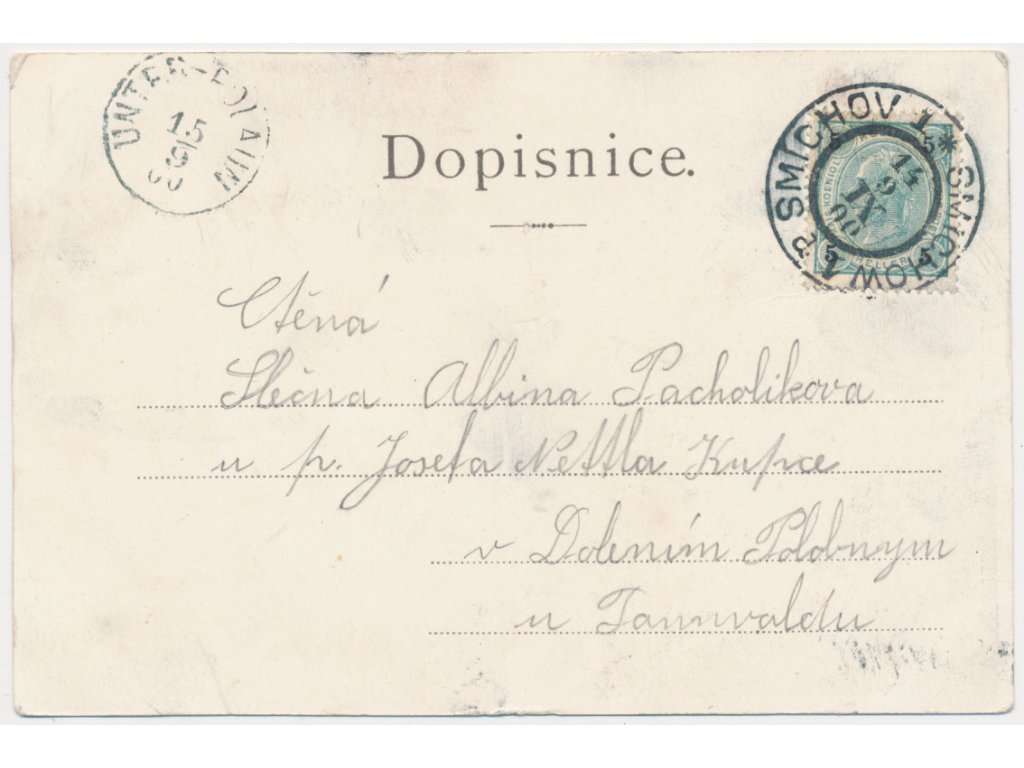 UNTER-POLAUN
15
9
00
Dopisnice.
SMÍCHOV 1
SMICHOW 1
14
9
IX
00
5
5
5
Ctěná
Slečna Albina Pacholikova
u p. Josefa Nettla Kupce
v Dolením Polobnym
u Tannvaldu